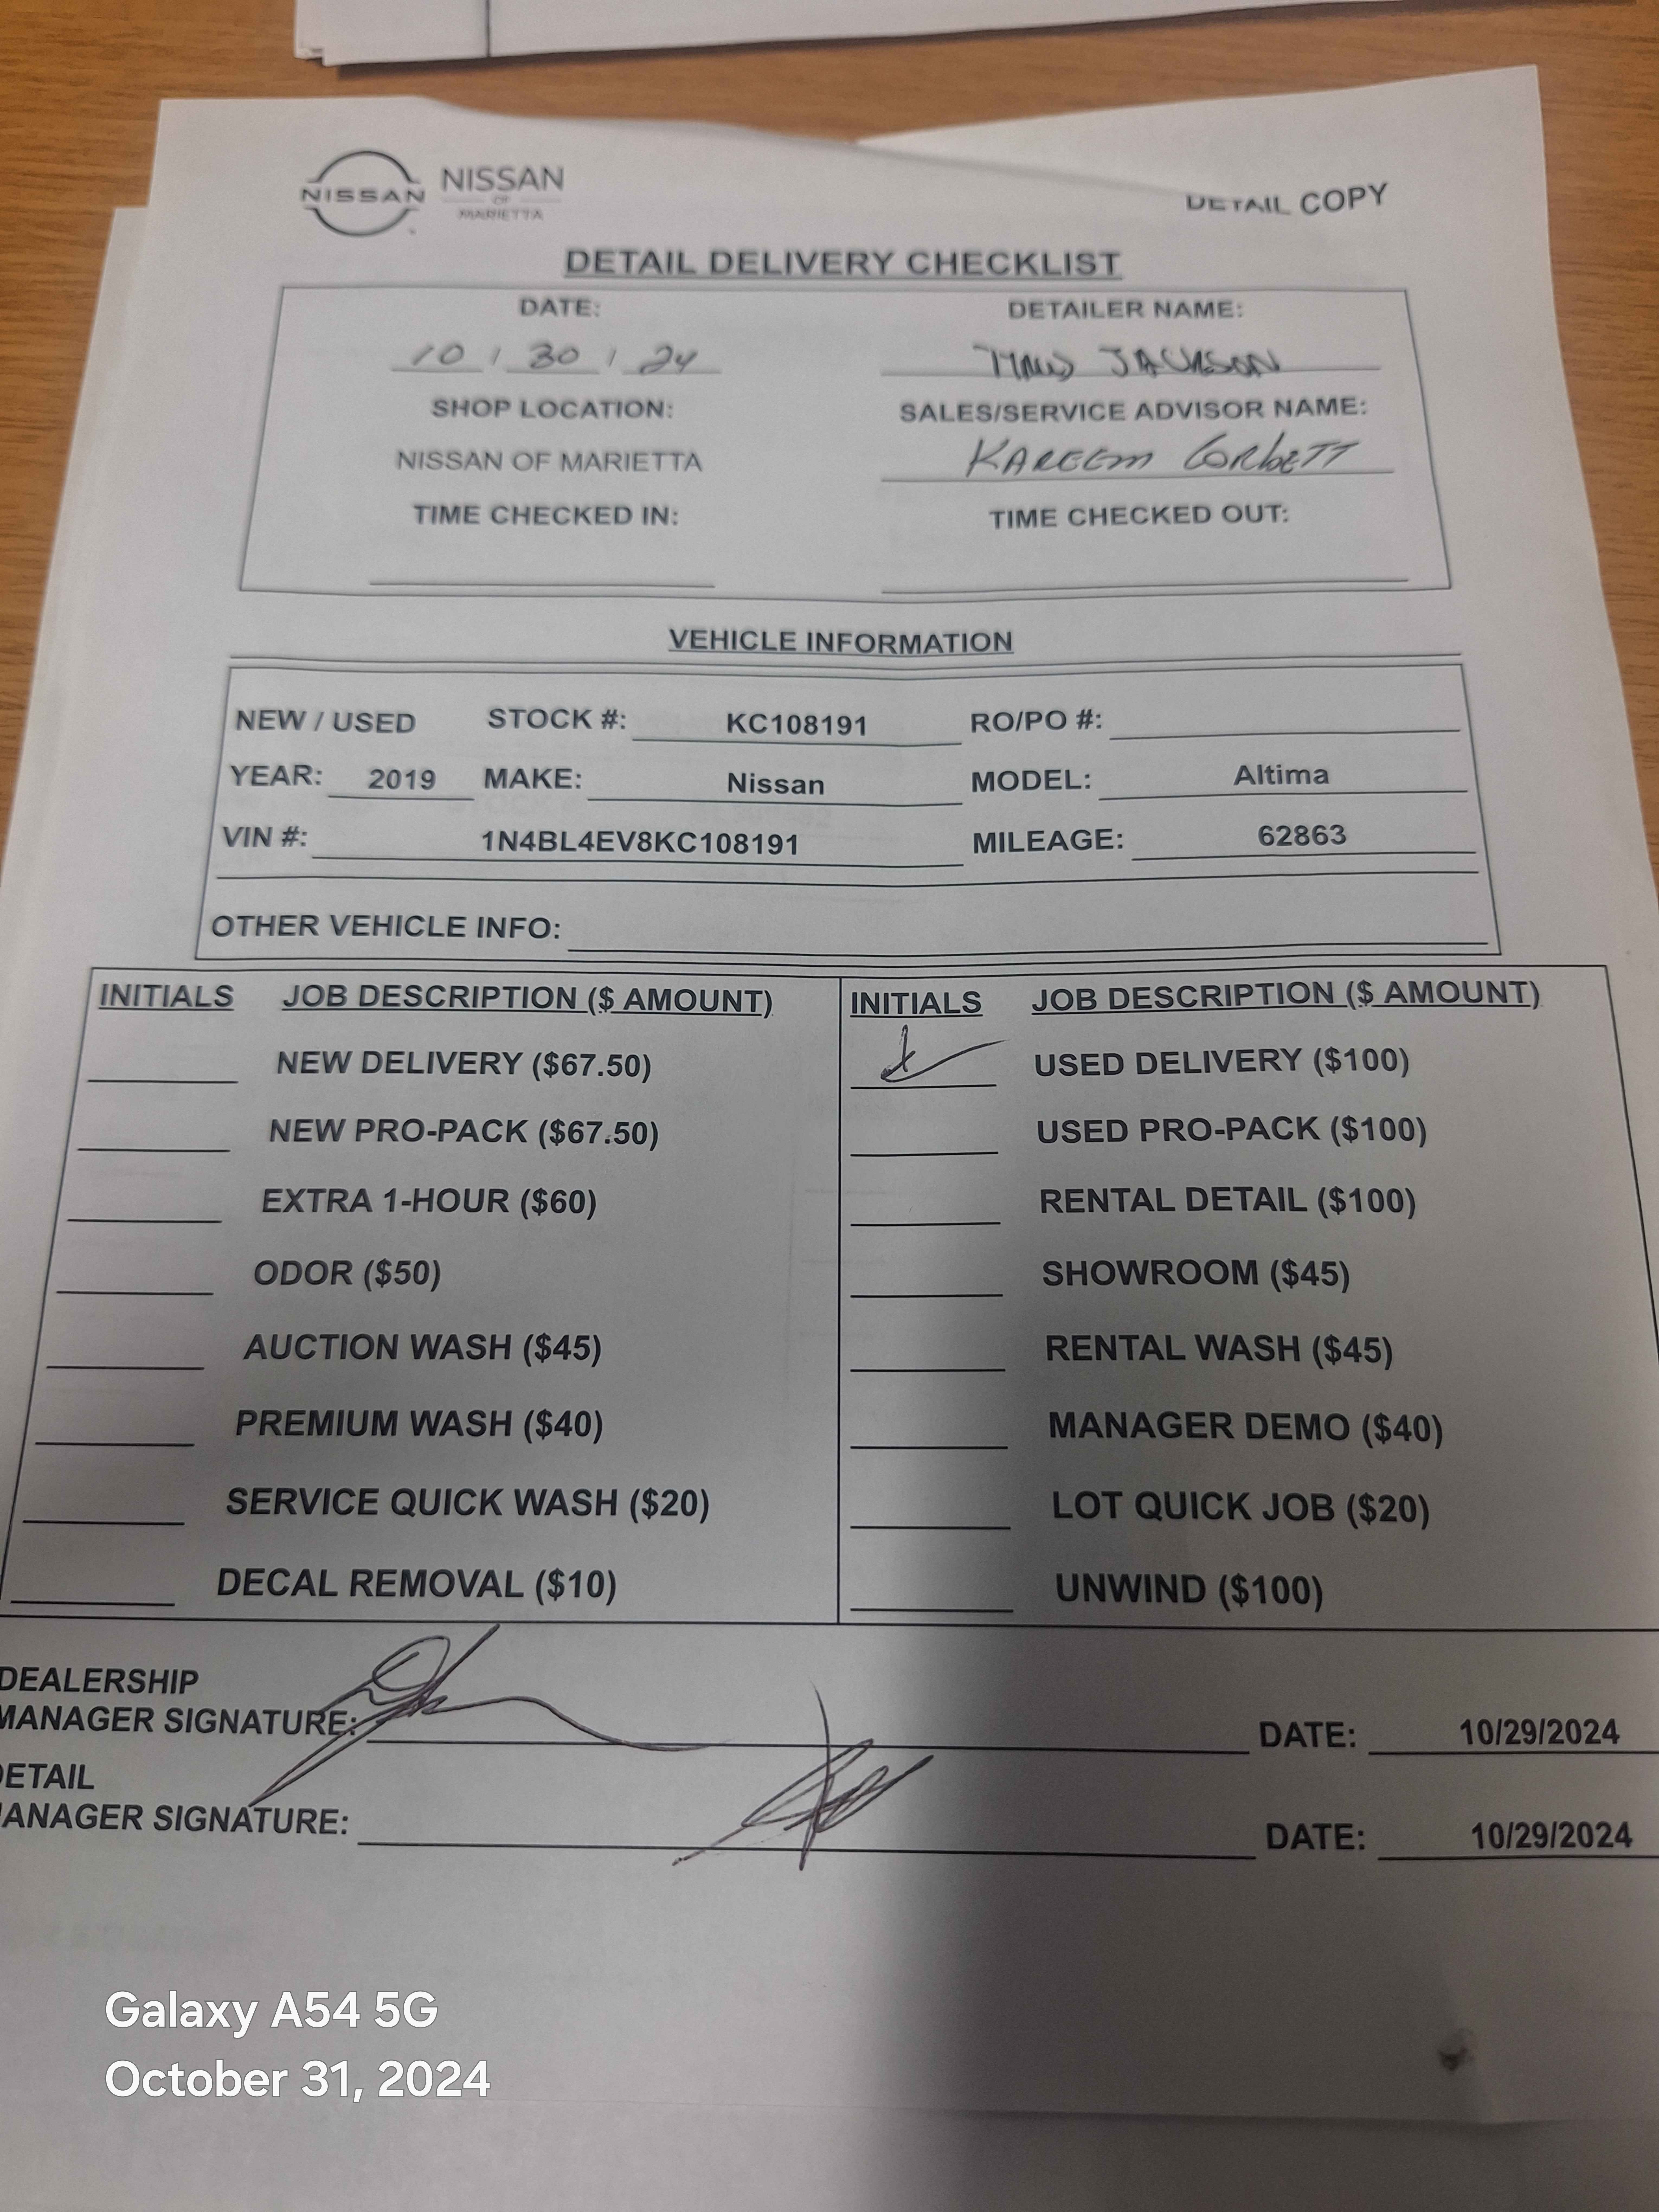 NISSAN NISSAN
OF
MARIETTA
DETAIL COPY
DETAIL DELIVERY CHECKLIST
DATE: DETAILER NAME:
10 / 30 / 24 JACKSON
SHOP LOCATION: SALES/SERVICE ADVISOR NAME:
NISSAN OF MARIETTA KAREEM CORBETT
TIME CHECKED IN: TIME CHECKED OUT:
VEHICLE INFORMATION
NEW / USED STOCK #: KC108191 RO/PO #:
YEAR: 2019 MAKE: Nissan MODEL: Altima
VIN #: 1N4BL4EV8KC108191 MILEAGE: 62863
OTHER VEHICLE INFO:
INITIALS JOB DESCRIPTION ($ AMOUNT) INITIALS JOB DESCRIPTION ($ AMOUNT)
NEW DELIVERY ($67.50) USED DELIVERY ($100)
NEW PRO-PACK ($67.50) USED PRO-PACK ($100)
EXTRA 1-HOUR ($60) RENTAL DETAIL ($100)
ODOR ($50) SHOWROOM ($45)
AUCTION WASH ($45) RENTAL WASH ($45)
PREMIUM WASH ($40) MANAGER DEMO ($40)
SERVICE QUICK WASH ($20) LOT QUICK JOB ($20)
DECAL REMOVAL ($10) UNWIND ($100)
DEALERSHIP
MANAGER SIGNATURE: DATE: 10/29/2024
DETAIL
MANAGER SIGNATURE: DATE: 10/29/2024
Galaxy A54 5G
October 31, 2024